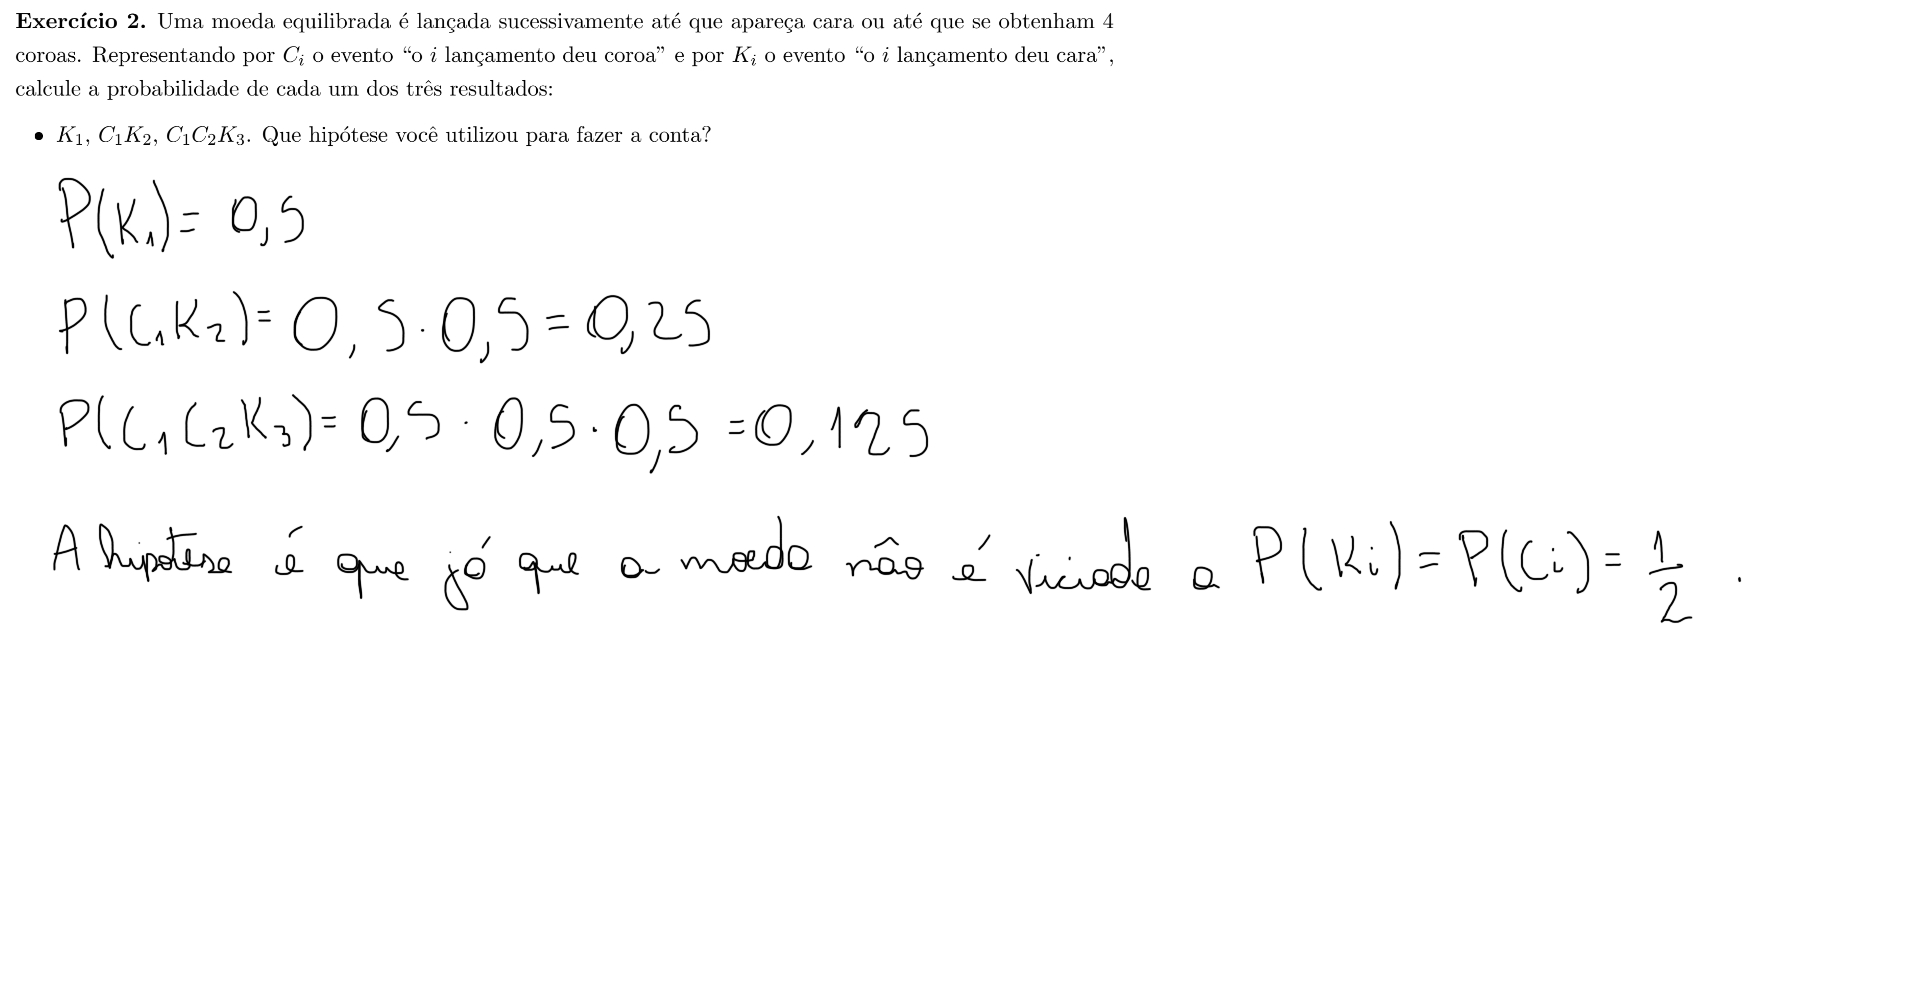 Exercício 2. Uma moeda equilibrada é lançada sucessivamente até que apareça cara ou até que se obtenham 4
coroas. Representando por C_i o evento “o i lançamento deu coroa” e por K_i o evento “o i lançamento deu cara”,
calcule a probabilidade de cada um dos três resultados:
• K_1, C_1K_2, C_1C_2K_3. Que hipótese você utilizou para fazer a conta?
P(K_1) = 0,5
P(C_1K_2) = 0,5 · 0,5 = 0,25
P(C_1C_2K_3) = 0,5 · 0,5 · 0,5 = 0,125
A hipótese é que já que a moeda não é viciada a P(Ki) = P(Ci) = 1/2 .